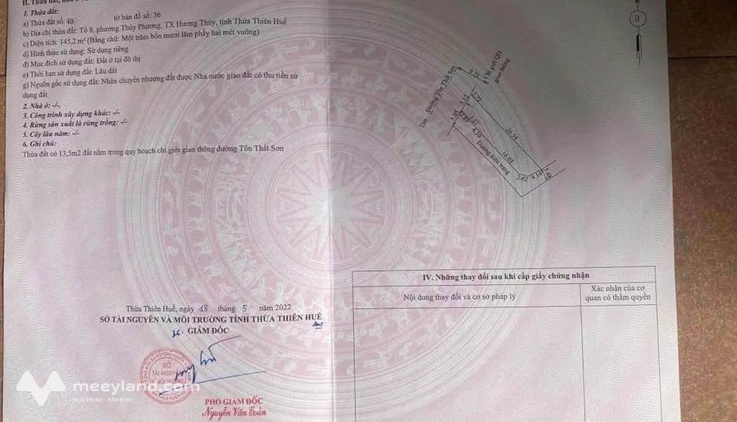 II. Thửa đất,
1. Thửa đất:
a) Thửa đất số: 40 tờ bản đồ số: 36
b) Địa chỉ thửa đất: Tổ 8, phường Thủy Phương, TX Hương Thủy, tỉnh Thừa Thiên Huế
c) Diện tích: 145,2 m² (Bằng chữ: Một trăm bốn mươi lăm phẩy hai mét vuông)
d) Hình thức sử dụng: Sử dụng riêng
đ) Mục đích sử dụng đất: Đất ở tại đô thị
e) Thời hạn sử dụng đất: Lâu dài
g) Nguồn gốc sử dụng đất: Nhận chuyển nhượng đất được Nhà nước giao đất có thu tiền sử
dụng đất
2. Nhà ở: -/-
3. Công trình xây dựng khác: -/-
4. Rừng sản xuất là rừng trồng: -/-
5. Cây lâu năm: -/-
6. Ghi chú:
Thửa đất có 13,5m2 đất nằm trong quy hoạch chỉ giới giao thông đường Tôn Thất Sơn
B
Đường Tôn Thất Sơn
Chỉ giới QH
giao thông
Đường hiện trạng
Thừa Thiên Huế, ngày 18 tháng 5 năm 2022
SỞ TÀI NGUYÊN VÀ MÔI TRƯỜNG TỈNH THỪA THIÊN HUẾ
GIÁM ĐỐC
SỞ
PHÓ GIÁM ĐỐC
Nguyễn Văn Toàn
IV. Những thay đổi sau khi cấp giấy chứng nhận
Nội dung thay đổi và cơ sở pháp lý
Xác nhận của cơ
quan có thẩm quyền
meeyland.com